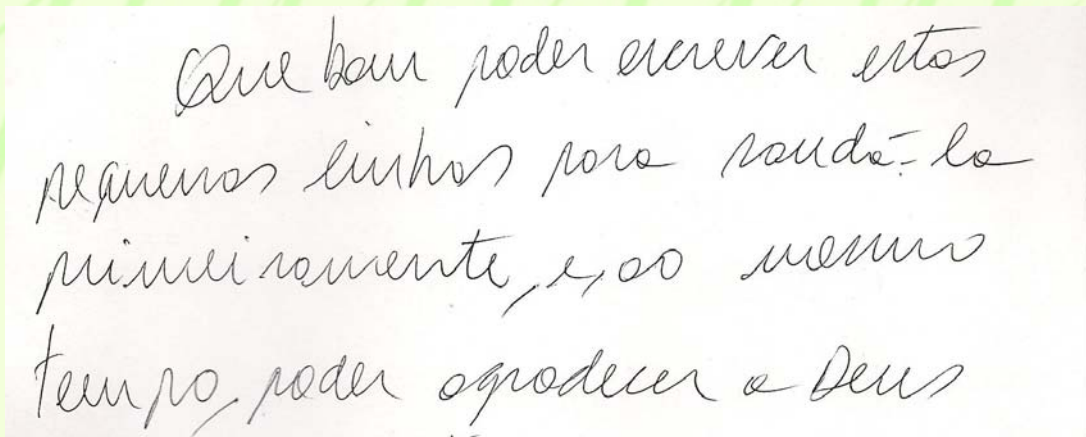 Que bom poder escrever estas
pequenas linhas para saudá-la
primeiramente, e, ao mesmo
tempo, poder agradecer a Deus